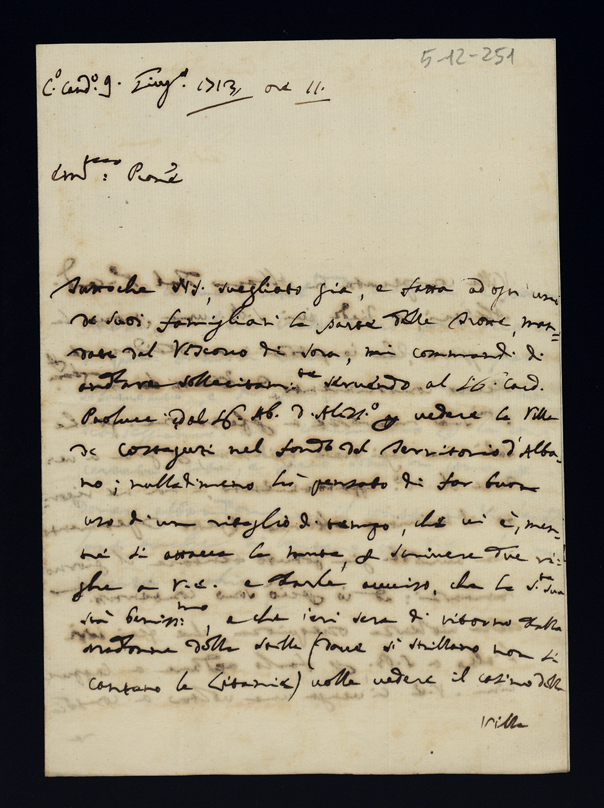 5-12-251
C.o Cand.o 9. Giug.o 1713, ore 11.
Em.mo: Prone
Tuttoche N.S., svegliato già, e fatta ad ogn' uno
de suoi famigliari la parte delle man=
date dal Vescovo di Sora, mi commandi di
andare sollecitam.te servendo al Sig. Card.
Paolucci dal Sig. Ab. d'Aless.o a vedere la Villa
de Costaguti nel fondo del Territorio d'Alba=
no; nulladimeno hò pensato di far buon
uso di un ritaglio di tempo, che vi è, men=
tre si attacca la muta, di scrivere due ri=
ghe a V.E. e darle avviso, che la S.tà Sua
stà beniss.mo, e che ieri sera di ritorno dalla
Madonna della Stella (dove si strillano non si
cantano le Litanie) volle vedere il casino della
Villa